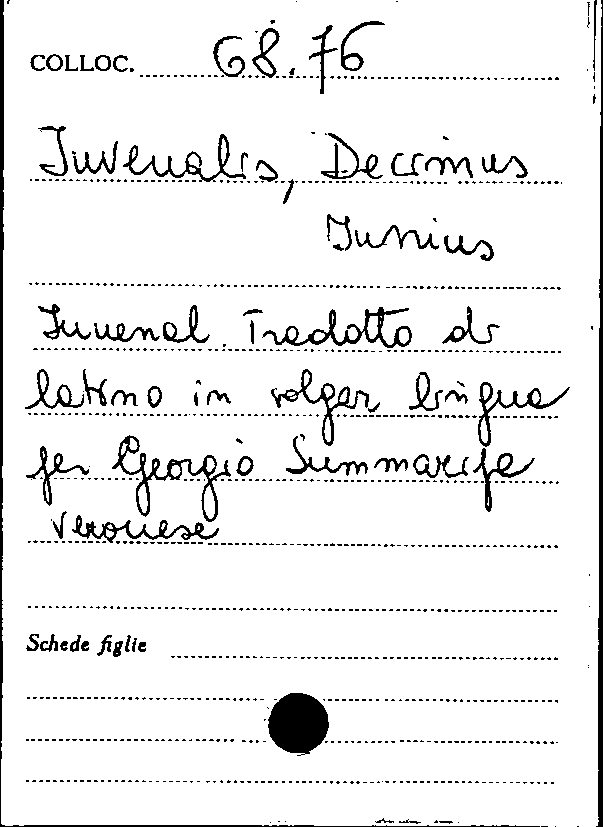 COLLOC. 68.76
Iuvenalis, Decimus
Iunius
Iuvenal. Tradotto di
latino in volgar lingua
per Georgio Summaripa
veronese
Schede figlie